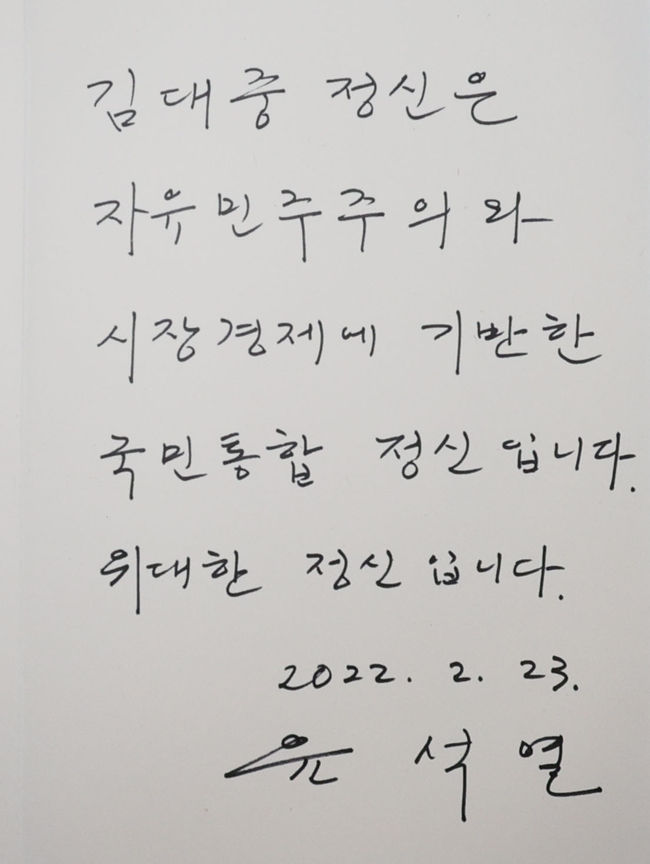 김대중 정신은
자유민주주의와
시장경제에 기반한
국민통합 정신입니다.
위대한 정신입니다.
2022. 2. 23.
윤석열